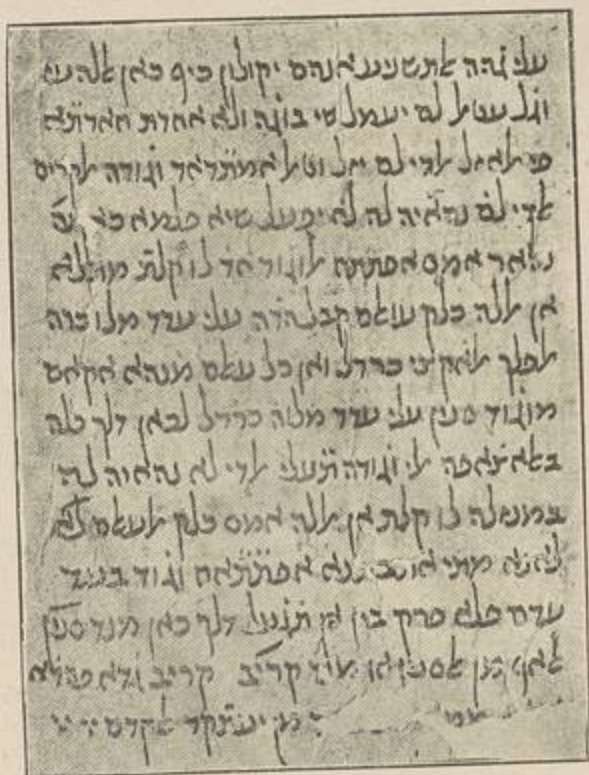 עלי הדה אלתשניע אנהם יקולון כיף כאן אלאלה עז
וגל עטאל לם יעמל שי בוגה ולא אחדת חאדתא
פי אלאזל אלדי לם יזל וטול אמתדאד וגודה אלקדים
אלדי לא נהאיה לה לא יפעל שיא פלמא כאן
נהאר אמס אפתתח אלוגוד לו קלת מתלא
אן אללה כלק עואלם קבל הדא עלי עדד מלו כרה
אלפלך אלאקצי כרדל ואן כל עאלם מנהא אקאם
מוגוד סנין עלי עדד מלוה כרדל לכאן דלך כלה
באלאצאפה אלי וגודה תעאלי אלדי לא נהאיה לה
במנזלה לו קלת אן אללה אמס כלק אלעאלם
לאנא מתי אותבתנא אפתתאח וגוד בעד
עדם פלא פרק בין אן תגעל דלך כאן מנד
אלאף מן אלסנין או מנד קריב קריב גדא פהדא
מן יעתקד אלקדם